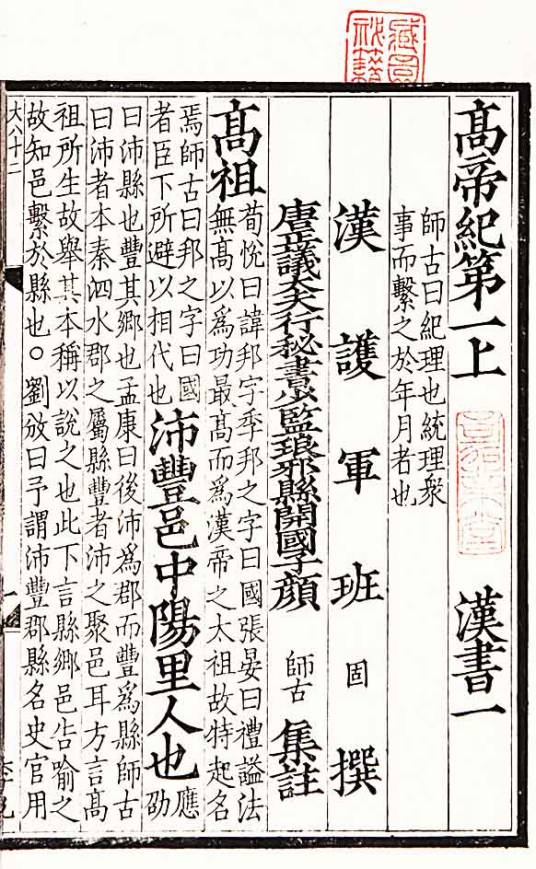 髙帝紀第一上　漢書一
師古曰紀理也統理衆
事而繫之於年月者也
漢護軍班固撰
唐正議大夫行秘書少監琅邪縣開國子顔師古集註
髙祖
荀悅曰諱邦字季邦之字曰國張晏曰禮謚法
無髙以爲功最髙而爲漢帝之太祖故特起名
焉師古曰邦之字曰國
者臣下所避以相代也
沛豐邑中陽里人也
應
劭
曰沛縣也豐其鄉也孟康曰後沛爲郡而豐爲縣師古
曰沛者本秦泗水郡之屬縣豐者沛之聚邑耳方言髙
祖所生故舉其本稱以說之也此下言縣鄉邑告喻之
故知邑繫於縣也。劉攽曰予謂沛豐郡縣名史官用